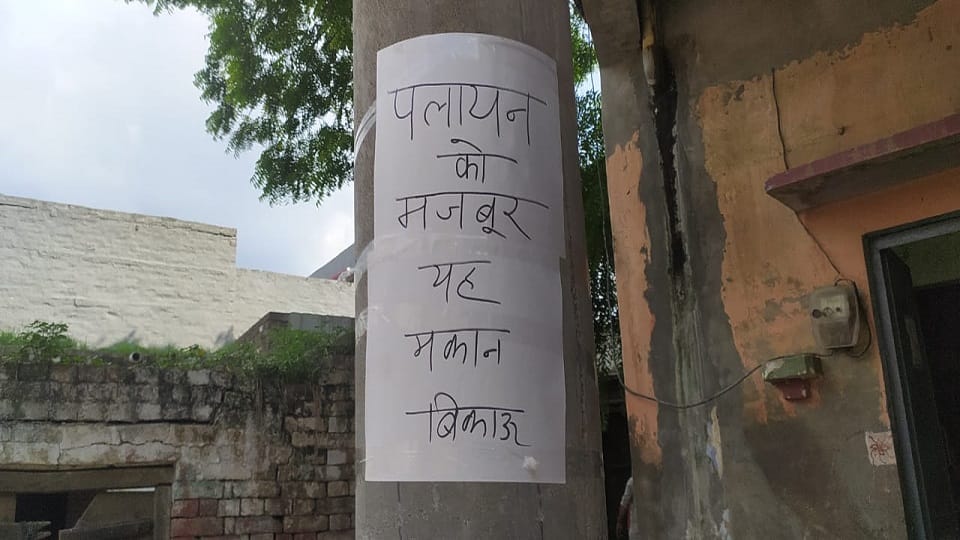 पलायन
को
मजबूर
यह
मकान
बिकाऊ